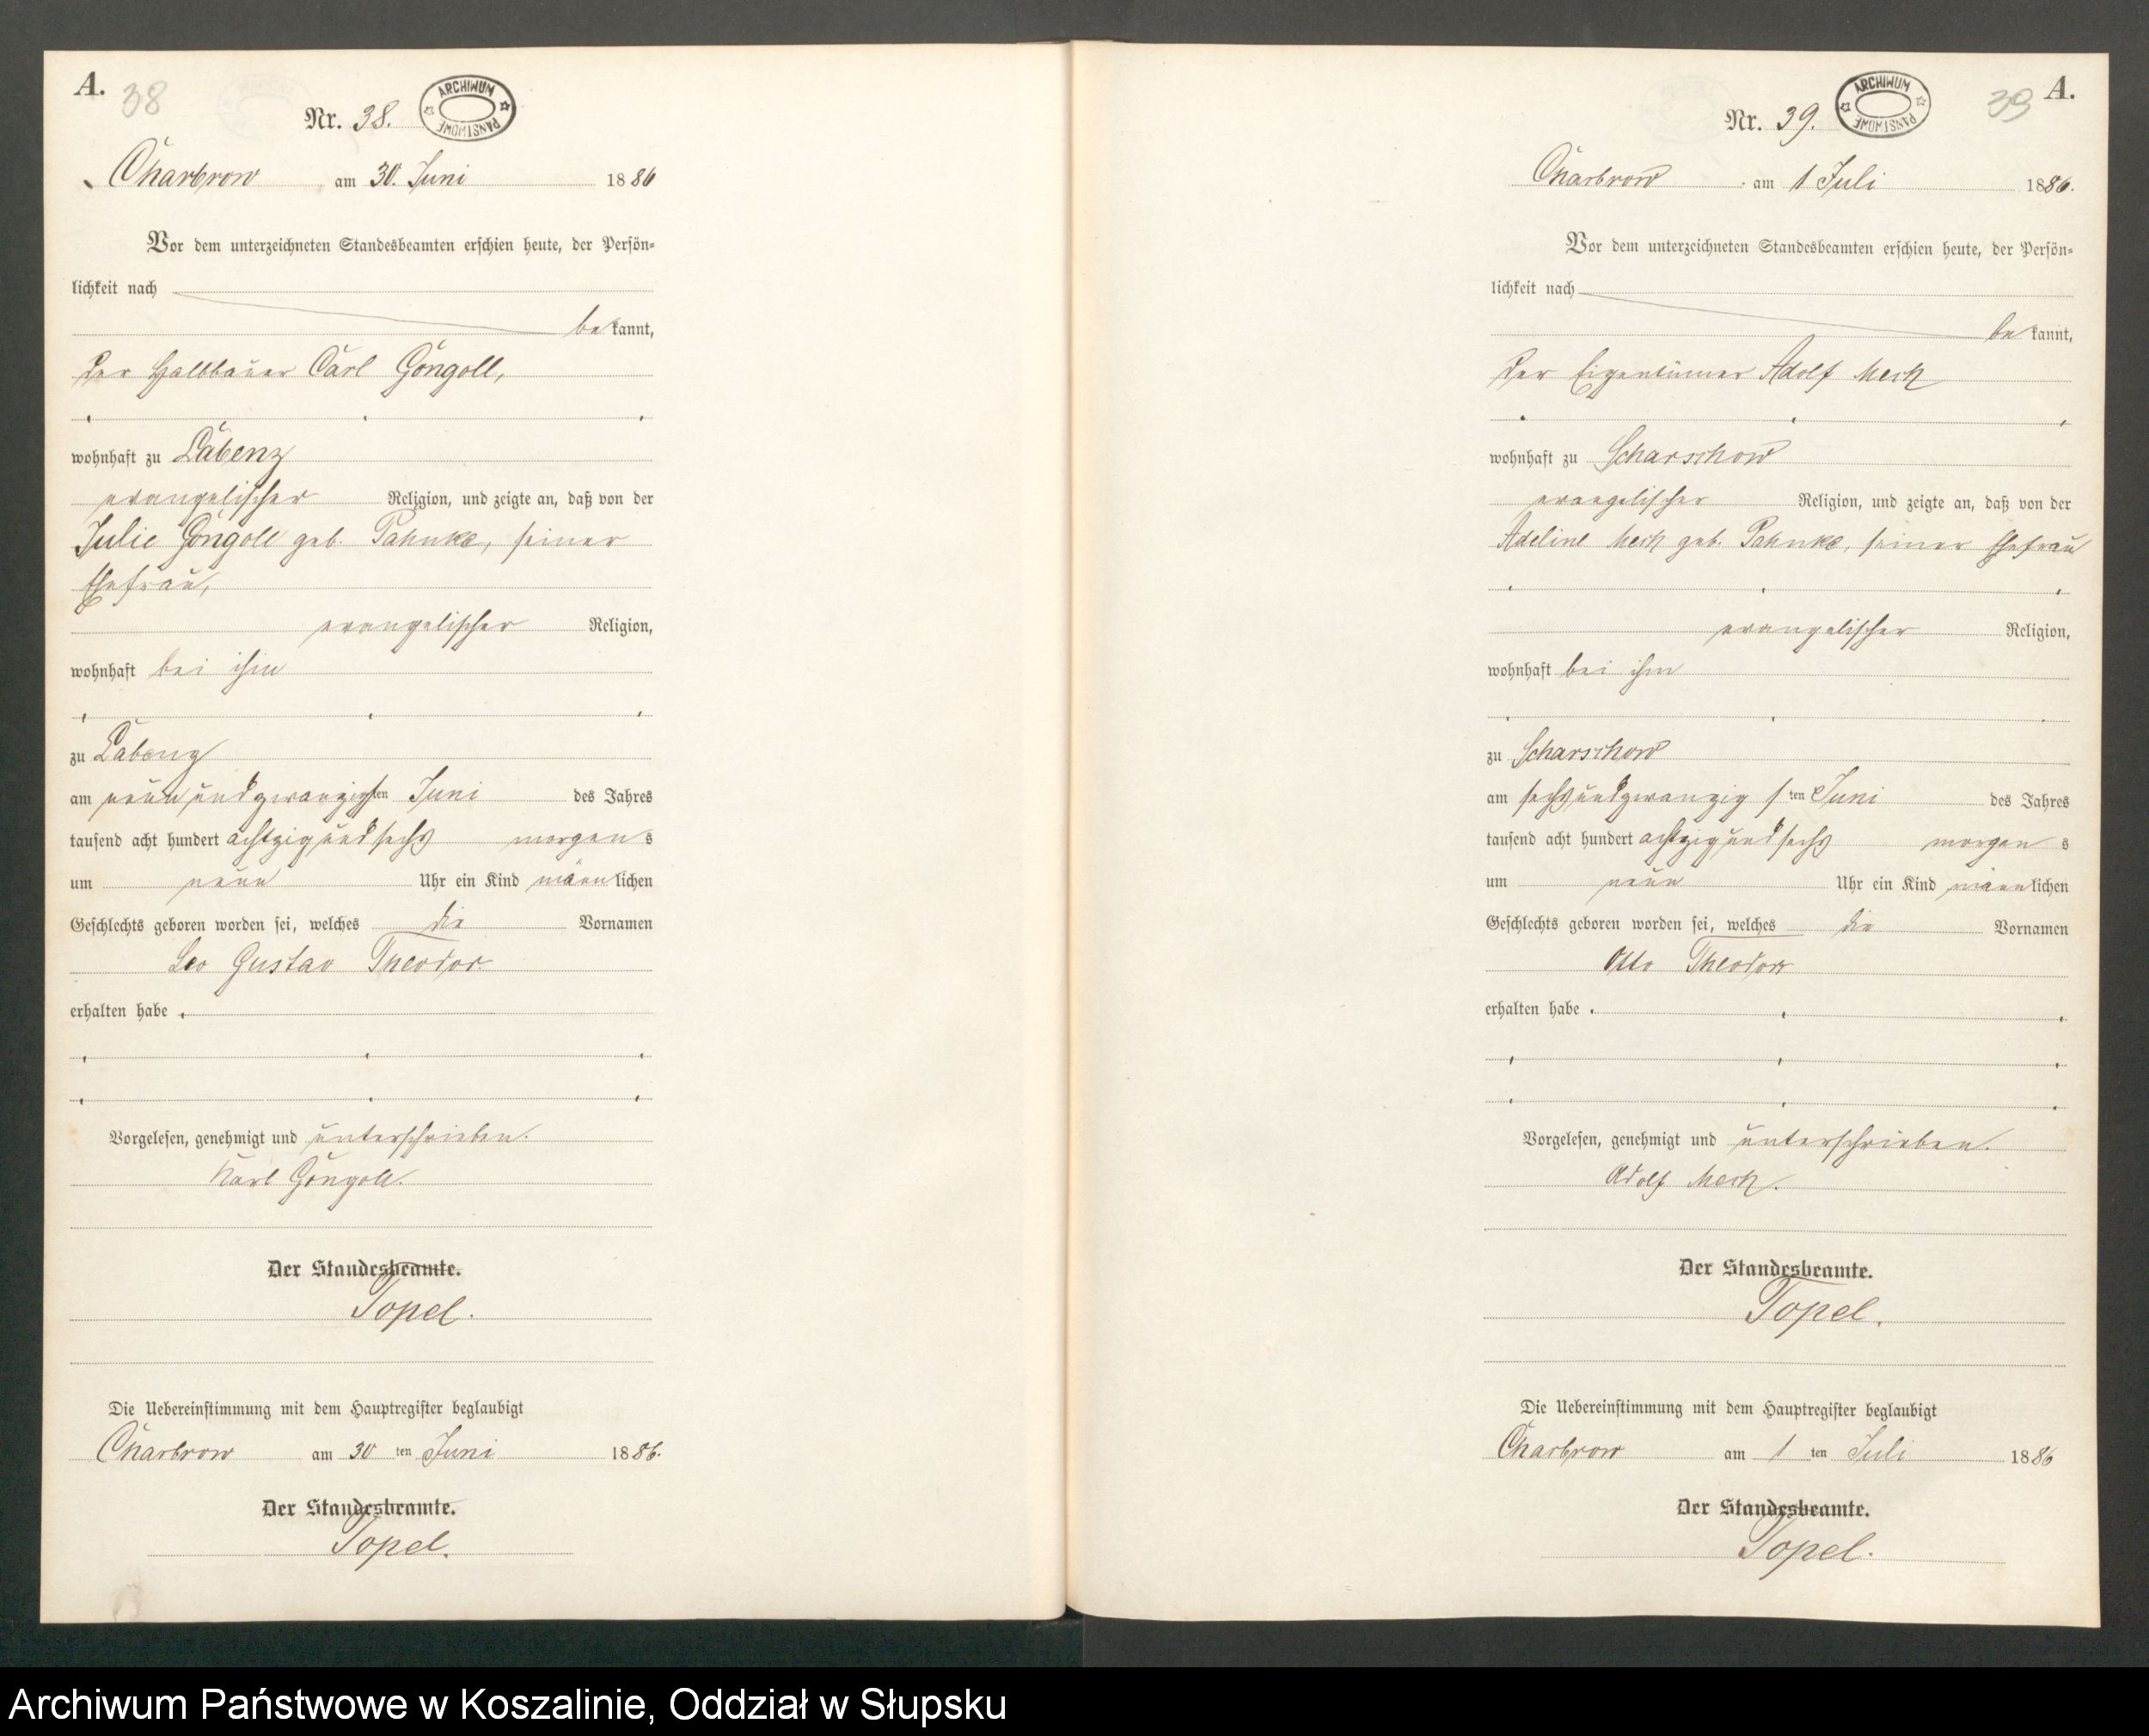 A.
38
Nr. 38.
ARCHIWUM PAŃSTWOWE
Charbrow am 30. Juni 1886
Vor dem unterzeichneten Standesbeamten erschien heute, der Persön-
lichkeit nach
bekannt,
der Halbbauer Carl Göngoll,
wohnhaft zu Labenz
evangelischer Religion, und zeigte an, daß von der
Julie Göngoll geb. Pahnke, seiner
Ehefrau,
evangelischer Religion,
wohnhaft bei ihm
zu Labenz
am neunundzwanzigsten Juni des Jahres
tausend acht hundert achtzig und sechs morgens
um neun Uhr ein Kind männlichen
Geschlechts geboren worden sei, welches die Vornamen
Leo Gustav Theodor
erhalten habe
Vorgelesen, genehmigt und unterschrieben.
Karl Göngoll.
Der Standesbeamte.
Topel.
Die Uebereinstimmung mit dem Hauptregister beglaubigt
Charbrow am 30 ten Juni 1886.
Der Standesbeamte.
Topel.
A.
39
Nr. 39.
ARCHIWUM PAŃSTWOWE
Charbrow am 1 Juli 1886.
Vor dem unterzeichneten Standesbeamten erschien heute, der Persön-
lichkeit nach
bekannt,
der Eigentümer Adolf Mech
wohnhaft zu Scharschow
evangelischer Religion, und zeigte an, daß von der
Adeline Mech geb. Pahnke, seiner Ehefrau
evangelischer Religion,
wohnhaft bei ihm
zu Scharschow
am sechsundzwanzigsten Juni des Jahres
tausend acht hundert achtzig und sechs morgens
um neun Uhr ein Kind männlichen
Geschlechts geboren worden sei, welches die Vornamen
Otto Theodor
erhalten habe
Vorgelesen, genehmigt und unterschrieben.
Adolf Mech.
Der Standesbeamte.
Topel.
Die Uebereinstimmung mit dem Hauptregister beglaubigt
Charbrow am 1 ten Juli 1886
Der Standesbeamte.
Topel.
Archiwum Państwowe w Koszalinie, Oddział w Słupsku